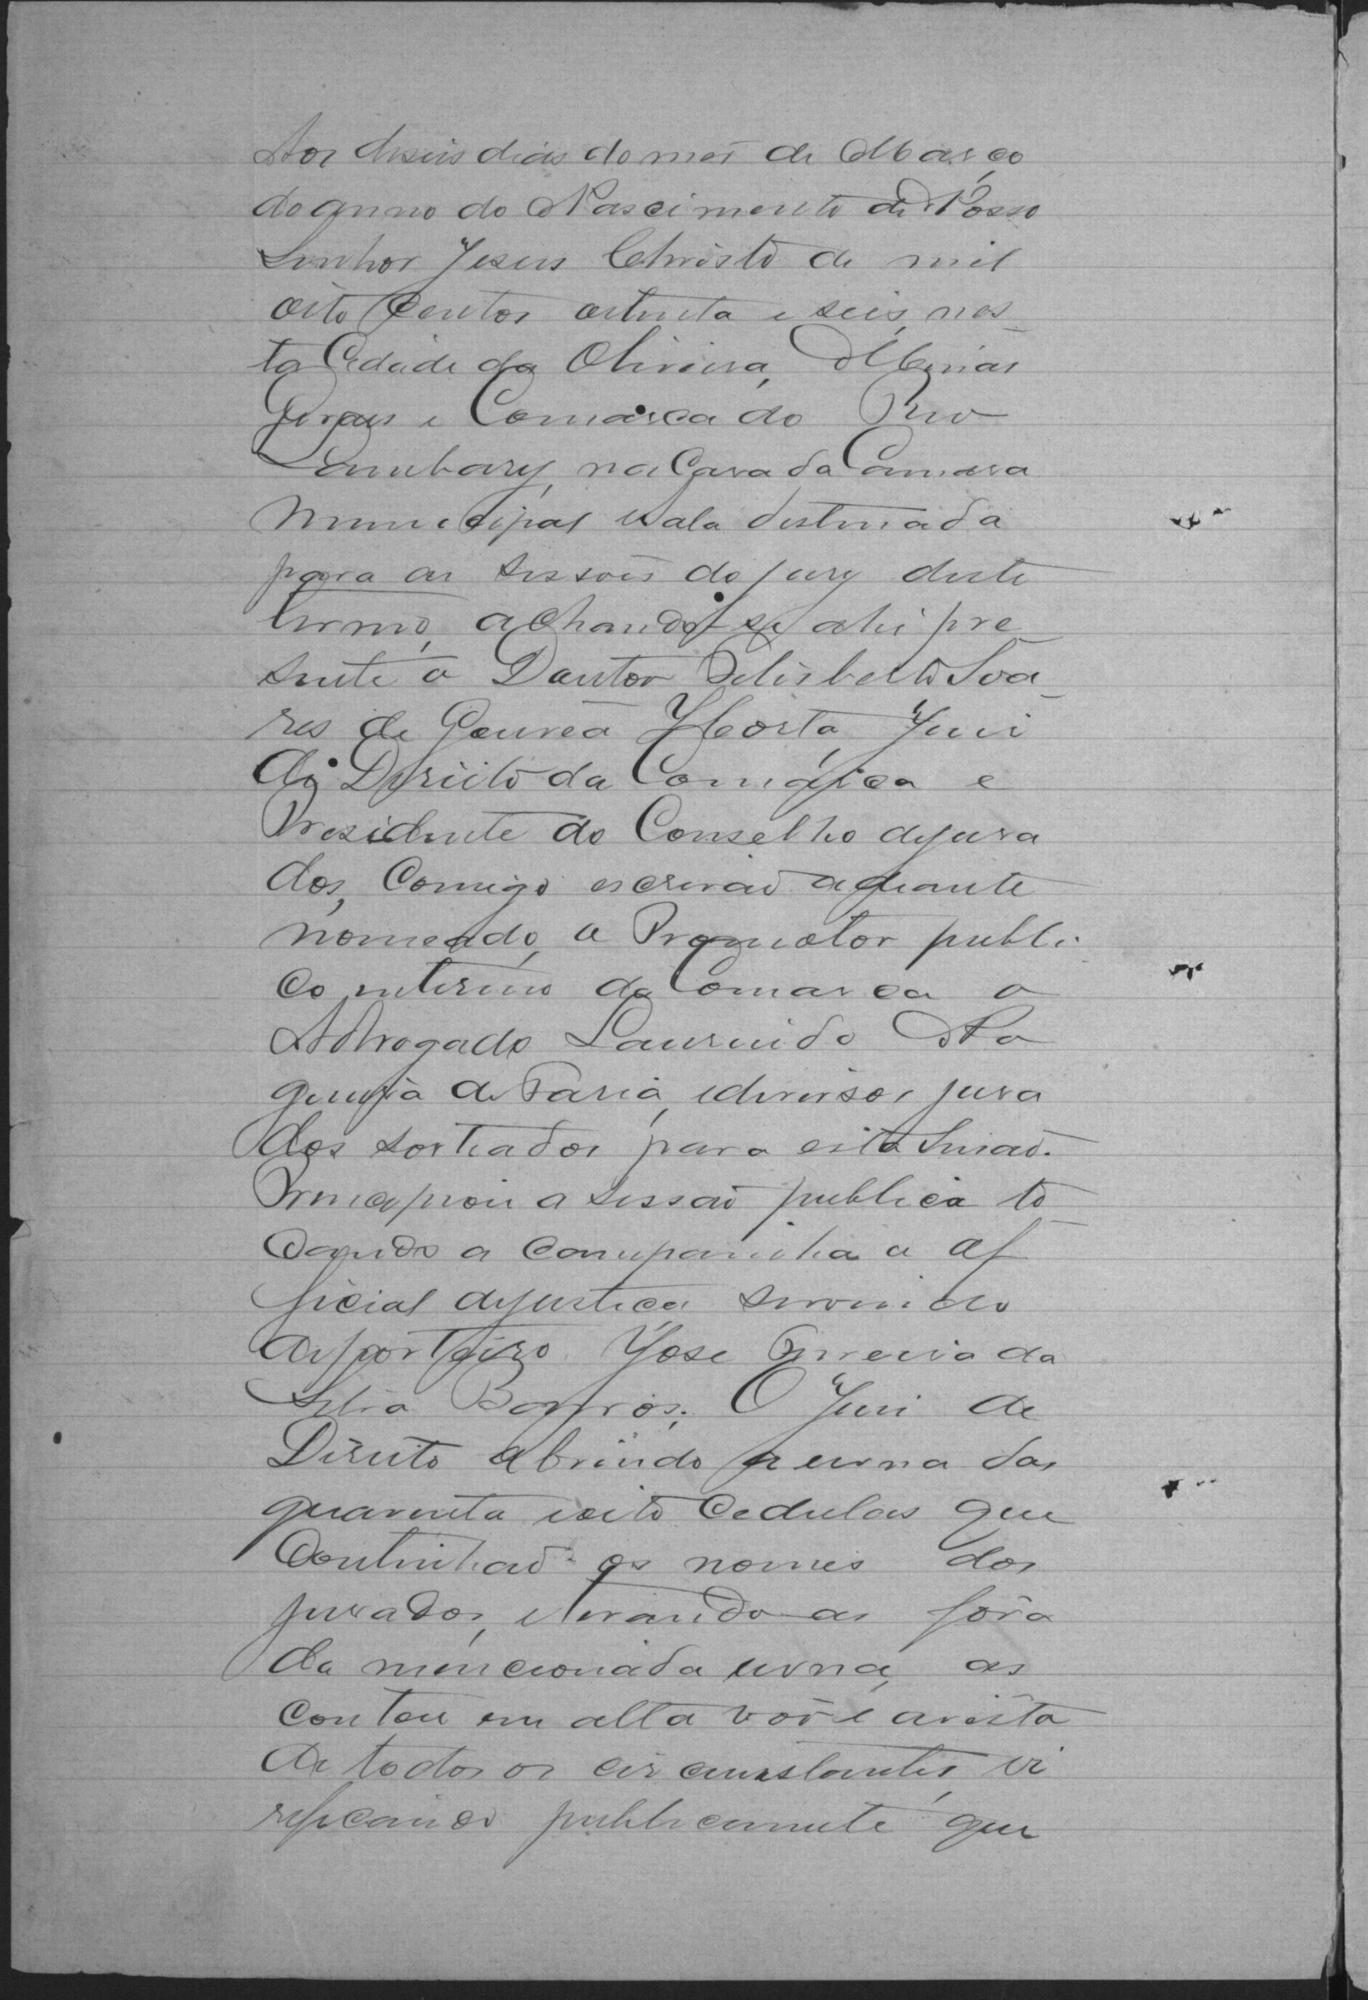 Aos deseis dias do mes de Março
do anno do Nascimento de Nosso
Senhor Jesus Christo de mil
oito centos oitenta e seis, nes-
ta Cidade da Oliveira, Minas
Geraes e Comarca do Rio
Lambary, na Casa da Camara
Municipal e sala destinada
para as sessões do jury deste
termo, achando-se ahi pre
sente o Doutor Felisberto Soa-
res de Gouvêa Horta Juis
de Direito da Comarca e
Presidente do Conselho de jura
dos, Comigo escrivão adiante
nomeado, o Promotor publi-
co interino da Comarca o
Advogado Laurindo No
gueira de Faria, e diversos jura
dos sorteados para esta Sessão.
Principiou a sessão publica to
cando a campainha o of
ficial de justiça servindo
de porteiro José Ferreira da
Silva Barros. O Juis de
Direito abrindo a urna das
quarenta e oito cedulas que
Continhão os nomes dos
jurados, e tirando as fóra
da mencionada urna, as
contou em alta vos e a vista
de todos os circunstantes, ve
rificando publicamente que